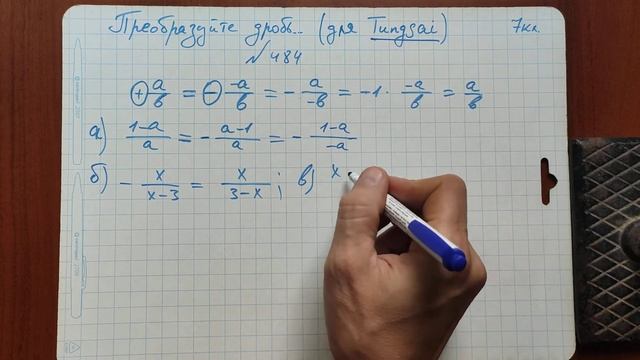 Преобразуйте дробь... (для Tungsai) 7кл.
№484
+ a/b = - -a/b = - a/-b = -1 · -a/b = a/b
а) 1-a/a = - a-1/a = - 1-a/-a
б) - x/x-3 = x/3-x ; в) x